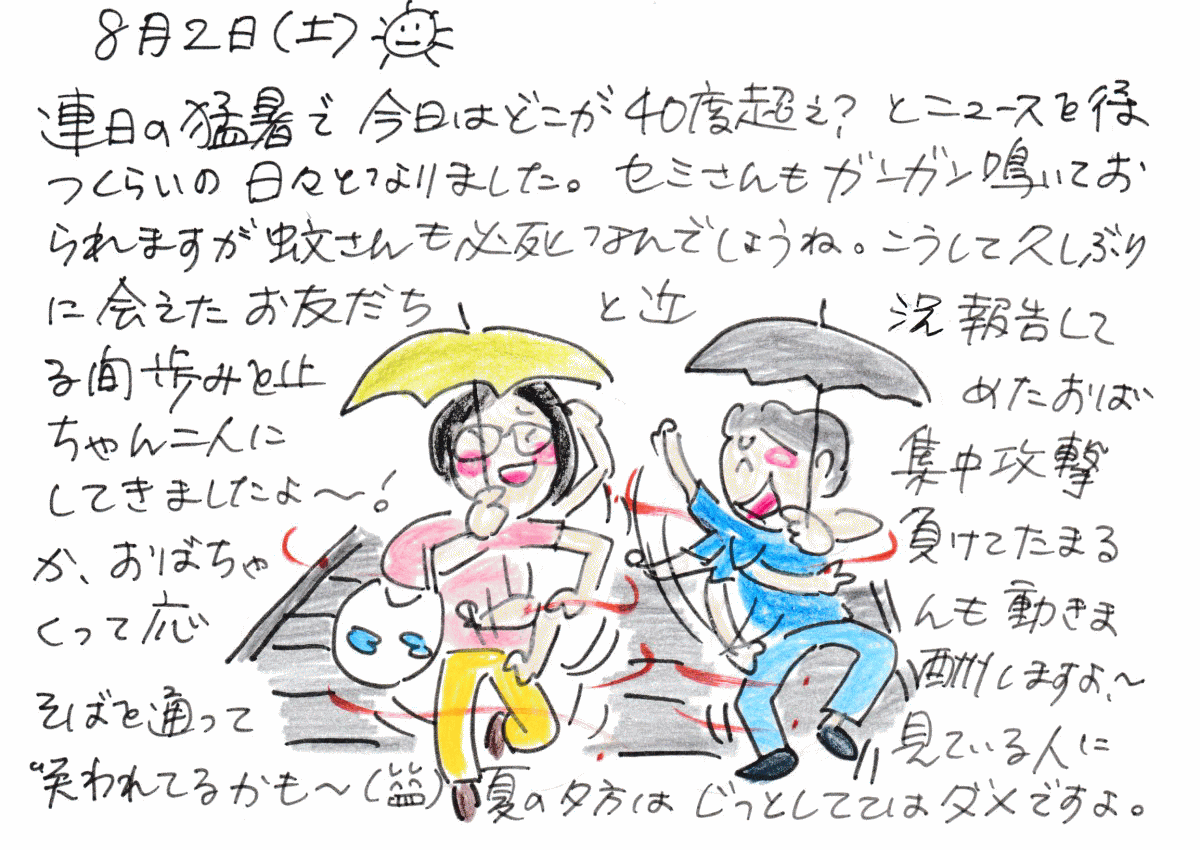 8月2日(土)
連日の猛暑で 今日はどこが40度超え? とニュースを待
つくらいの 日々となりました。 セミさんもガンガン鳴いてお
られますが蚊さんも必死なんでしょうね。こうして久しぶり
に会えたお友だち と近 況報告して
る間歩みを止 めたおば
ちゃん二人に 集中攻撃
してきましたよ〜! 負けてたまる
か、おばちゃ んも動きま
くって応 酬しますよ〜
そばを通って 見ている人に
“笑われてるかも〜(笑) 夏の夕方は じっとしててはダメですよ。